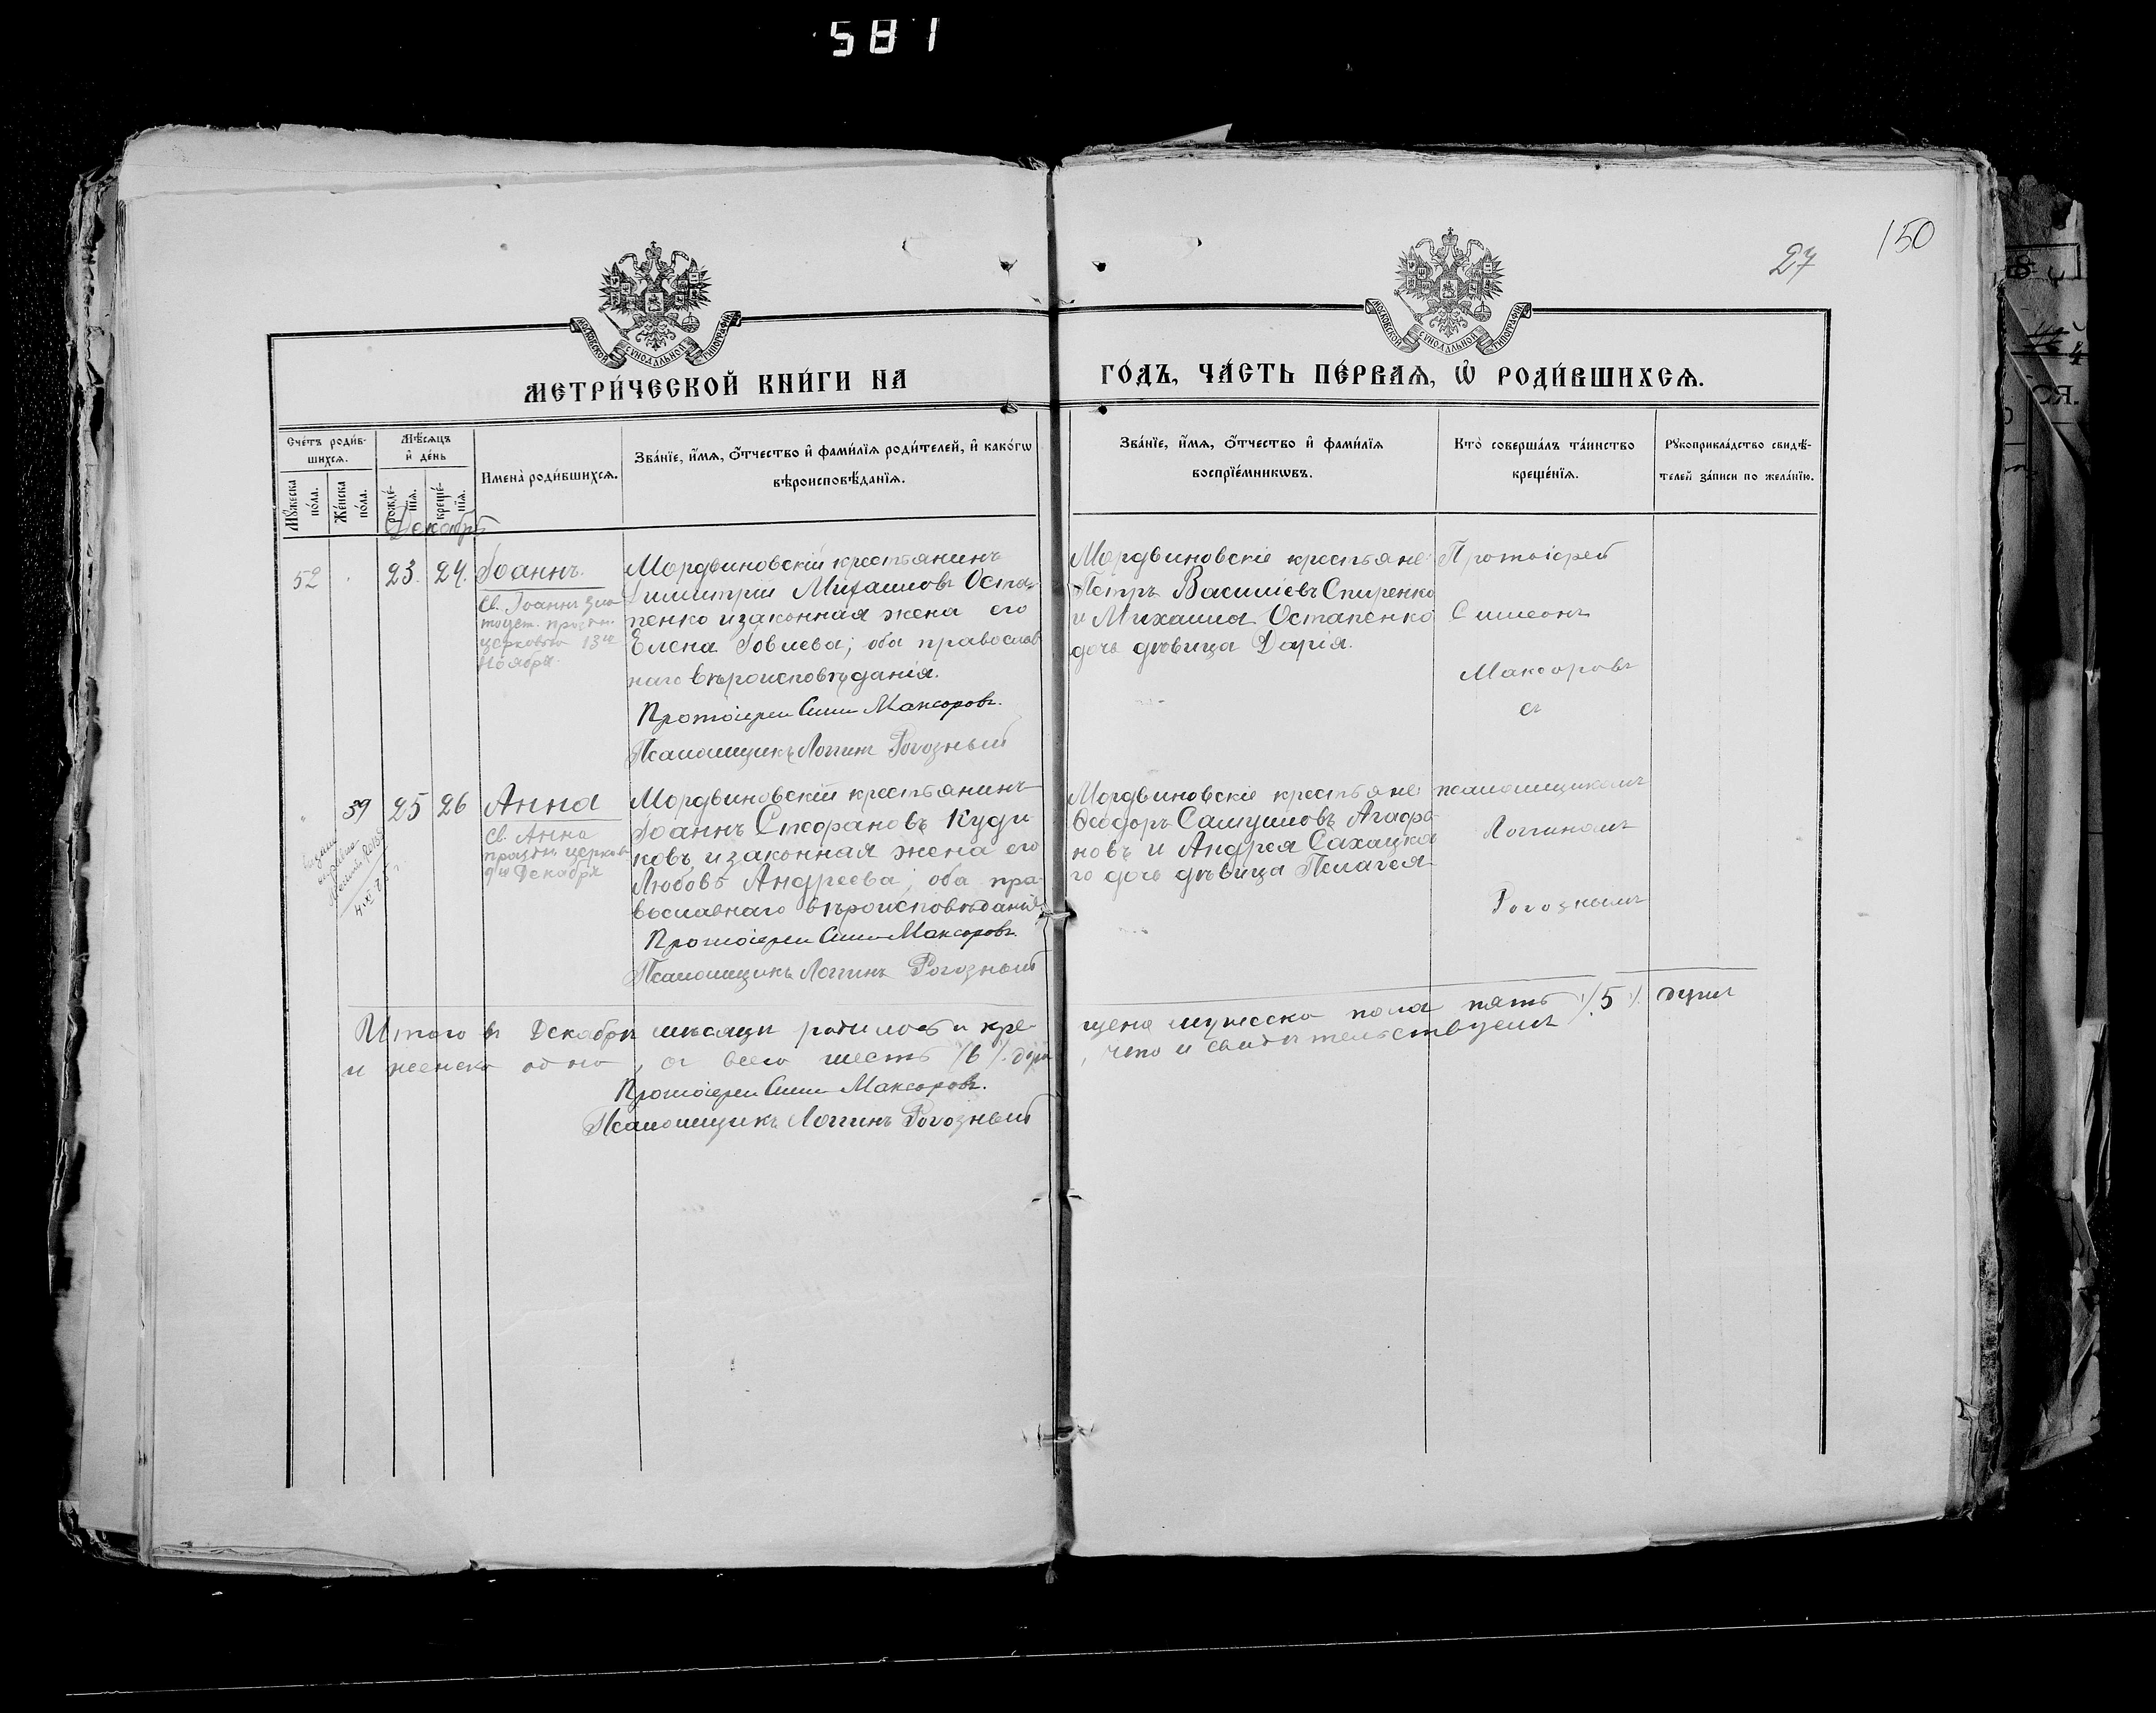 581
150
27
МОСКОВСКОЙ СѴНОДАЛЬНОЙ ТИПОГРАФІИ
МОСКОВСКОЙ СѴНОДАЛЬНОЙ ТИПОГРАФІИ
МЕТРИ́ЧЕСКОЙ КНИ́ГИ НА
ГО́ДЪ, ЧА́СТЬ ПЕ́РВАѦ, Ѽ РОДИ́ВШИХСѦ.
Сче́тъ роди́в-
шихсѧ.
Мѣ́сѧцъ
и҆ де́нь
Мꙋ́жеска
по́ла.
Же́нска
по́ла.
рожде́-
нїѧ.
креще́-
нїѧ.
Имена̀ роди́вшихсѧ.
Зва́нїе, и҆́мѧ, ѻ҆́тчество и҆ фами́лїѧ роди́телей, и҆ како́гѡ
вѣроисповѣ́данїѧ.
Зва́нїе, и҆́мѧ, ѻ҆́тчество и҆ фами́лїѧ
воспрїе́мникѡвъ.
Кто̀ соверша́лъ та́инство
креще́нїѧ.
Рꙋкоприкла́дство свидѣ́-
телей за́писи по жела́нїю.
Декабрь
52
23.
24.
Іоаннъ.
Св. Іоаннъ Зла
тоуст. праздн.
церковью 13го
Ноября.
Мордвиновскій крестьянинъ
Димитрій Михаиловъ Оста-
пенко и законная жена его
Елена Іовлева; оба православ
наго вѣроисповѣданія.
Протоіерей Сим. Максоровъ.
Псаломщикъ Логгинъ Рогозный
Мордвиновскіе крестьяне:
Петръ Василіевъ Спиренко
и Михаила Остапенко
дочь дѣвица Дарія.
Протоіерей
Симеонъ
Максоровъ
съ
39
25
26
Анна
Св. Анна
праздн. церков
9го Декабря
Мордвиновскій крестьянинъ
Іоаннъ Стефановъ Куди
ковъ и законная жена его
Любовь Андреева; оба пра-
вославнаго вѣроисповѣданія
Протоіерей Сим. Максоровъ.
Псаломщикъ Логгинъ Рогозный
Мордвиновскіе крестьяне:
Ѳеодоръ Самуиловъ Агафо
новъ и Андрея Сахацка
го дочь дѣвица Пелагея
псаломщикомъ
Логгиномъ
Рогознымъ
Итого въ Декабрѣ мѣсяцѣ родилось и кре-
щено мужеска пола пять /5/. душъ
и женска одно, а всего шесть /6/. душъ
, что и свидѣтельствуемъ
Протоіерей Сим. Максоровъ.
Псаломщикъ Логгинъ Рогозный